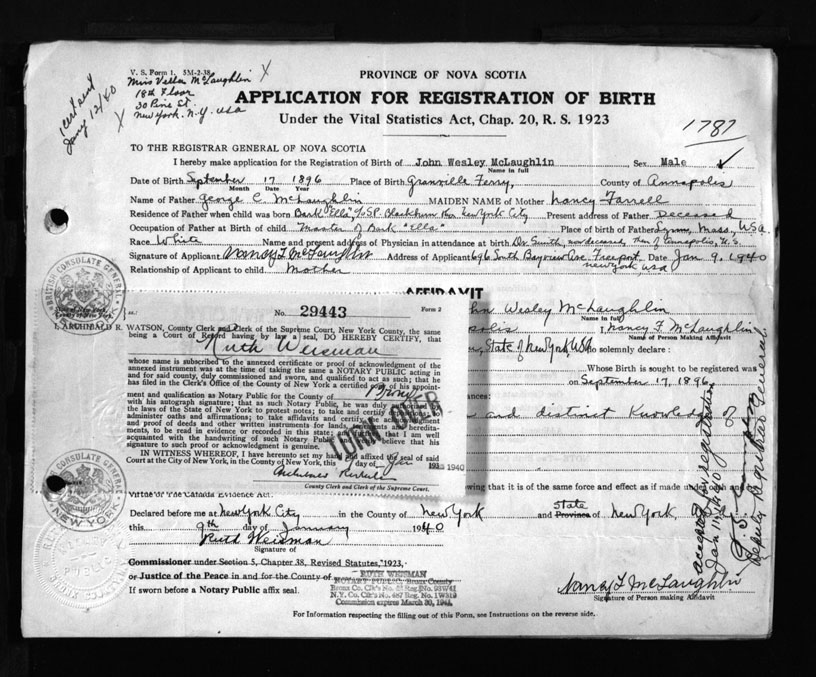 V. S. Form 1. 5M-2-38
Miss Vella McLaughlin X
18th Floor
30 Pine St.
New York. N.Y. USA
X
Jany 12/40
PROVINCE OF NOVA SCOTIA
APPLICATION FOR REGISTRATION OF BIRTH
Under the Vital Statistics Act, Chap. 20, R. S. 1923
1787
TO THE REGISTRAR GENERAL OF NOVA SCOTIA
I hereby make application for the Registration of Birth of John Wesley McLaughlin Sex Male
Name in full
Date of Birth September 17 1896 Place of Birth Granville Ferry, County of Annapolis
Month Date Year
Name of Father George C McLaughlin MAIDEN NAME of Mother Nancy Farrell
Residence of Father when child was born Bark "Ella", c/o S.P. Blackburn New York City Present address of Father Deceased
Occupation of Father at Birth of child Master of Bark "Ella" Place of birth of Father Lynn, Mass., USA.
Race White Name and present address of Physician in attendance at birth Dr. Smith, now deceased, then of Annapolis, N.S.
Signature of Applicant Nancy F McLaughlin Address of Applicant 696 South Bayview Ave. Freeport, Date Jan 9. 1940
New York, USA
Relationship of Applicant to child Mother
AFFIDAVIT
Wesley McLaughlin
Name in full
I, Nancy F. McLaughlin
Name of Person Making Affidavit
State of New York, USA do solemnly declare :
Whose Birth is sought to be registered was
on September 17, 1896
and distinct Knowledge of
No. 29443 Form 2
I, ARCHIBALD R. WATSON, County Clerk and Clerk of the Supreme Court, New York County, the same
being a Court of Record having by law a seal, DO HEREBY CERTIFY, that
Ruth Weisman
whose name is subscribed to the annexed certificate or proof of acknowledgment of the
annexed instrument was at the time of taking the same a NOTARY PUBLIC acting in
and for said county, duly commissioned and sworn, and qualified to act as such; that he
has filed in the Clerk's Office of the County of New York a certified copy of his appoint-
ment and qualification as Notary Public for the County of Bronx
with his autograph signature; that as such Notary Public, he was duly
the laws of the State of New York to protest notes; to take and certify
administer oaths and affirmations; to take affidavits and certify
and proof of deeds and other written instruments for lands,
ments, to be read in evidence or recorded in this state;
acquainted with the handwriting of such Notary Public that I am well
signature to such proof or acknowledgment is genuine. believe that his
IN WITNESS WHEREOF, I have hereunto set my hand and affixed the seal of said
Court at the City of New York, in the County of New York, this day of Jan 1940
County Clerk and Clerk of the Supreme Court.
TURN OVER
ing that it is of the same force and effect as if made under oath and
Virtue of The Canada Evidence Act.
Declared before me at New York City in the County of New York and State Province of New York
this 9th day of January 1940
Ruth Weisman
Signature of
Commissioner under Section 5, Chapter 38, Revised Statutes, 1923,
or Justice of the Peace in and for the County of
If sworn before a Notary Public affix seal.
RUTH WEISMAN
NOTARY PUBLIC, Bronx County
Commission expires March 30, 1941
Nancy F McLaughlin
Signature of Person making Affidavit
For Information respecting the filling out of this Form, see Instructions on the reverse side.
accepted for registration
Deputy Registrar General.
BRITISH CONSULATE GENERAL
NEW YORK